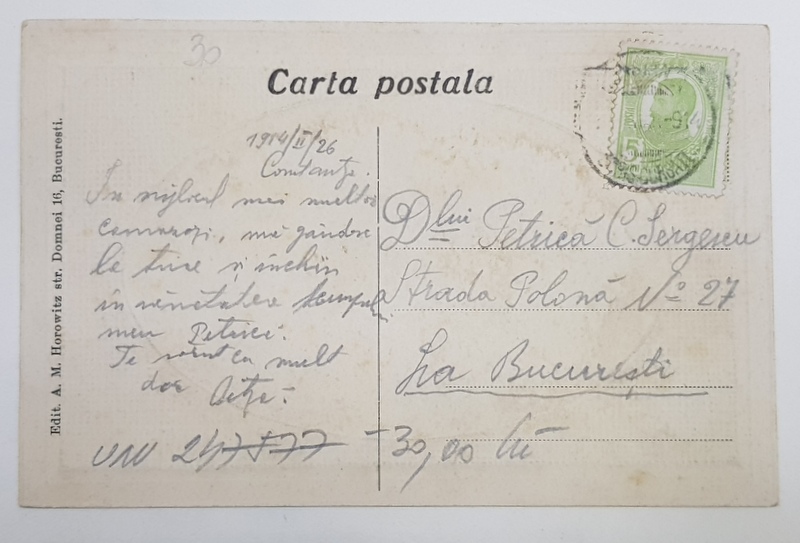 30
Carta postala
1914/II/26
Constanța.
În mijlocul mei multor
camarazi, mă gândesc
la tine și închin
în sănătatea
meu Petrică.
Te sărut cu mult
dor
Dlui Petrică C. Sergescu
Strada Polonă No 27
La București
30,00 lei
Edit. A. M. Horowitz str. Domnei 16, Bucuresti.
5